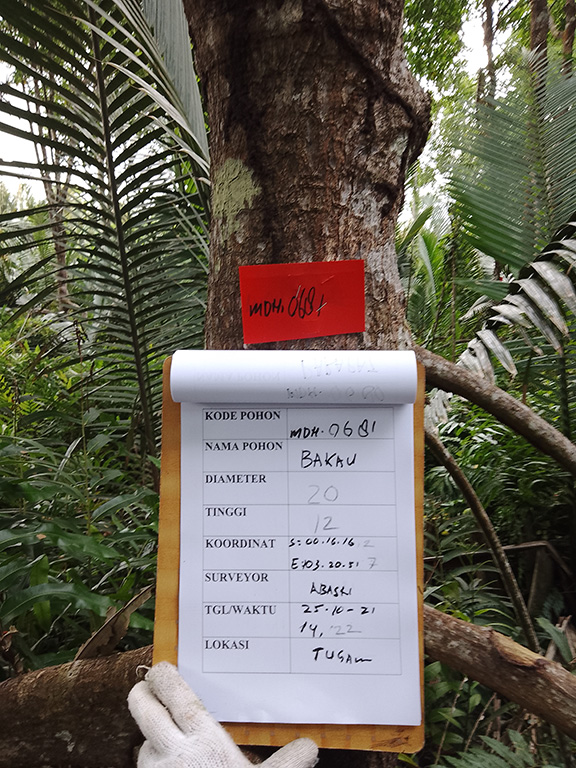 MDH. 0681
KODE POHON MDH. 0681
NAMA POHON BAKAU
DIAMETER 20
TINGGI 12
KOORDINAT S=00.16.16.2
E103.20.51 7
SURVEYOR
TGL/WAKTU 25-10-21
14, 22
LOKASI